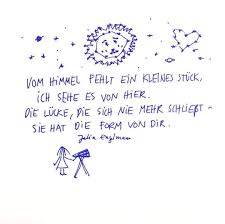 VOM HIMMEL FEHLT EIN KLEINES STÜCK,
ICH SEHE ES VON HIER.
DIE LÜCKE, DIE SICH NIE MEHR SCHLIEßT -
SIE HAT DIE FORM VON DIR.
Julia Engelmann